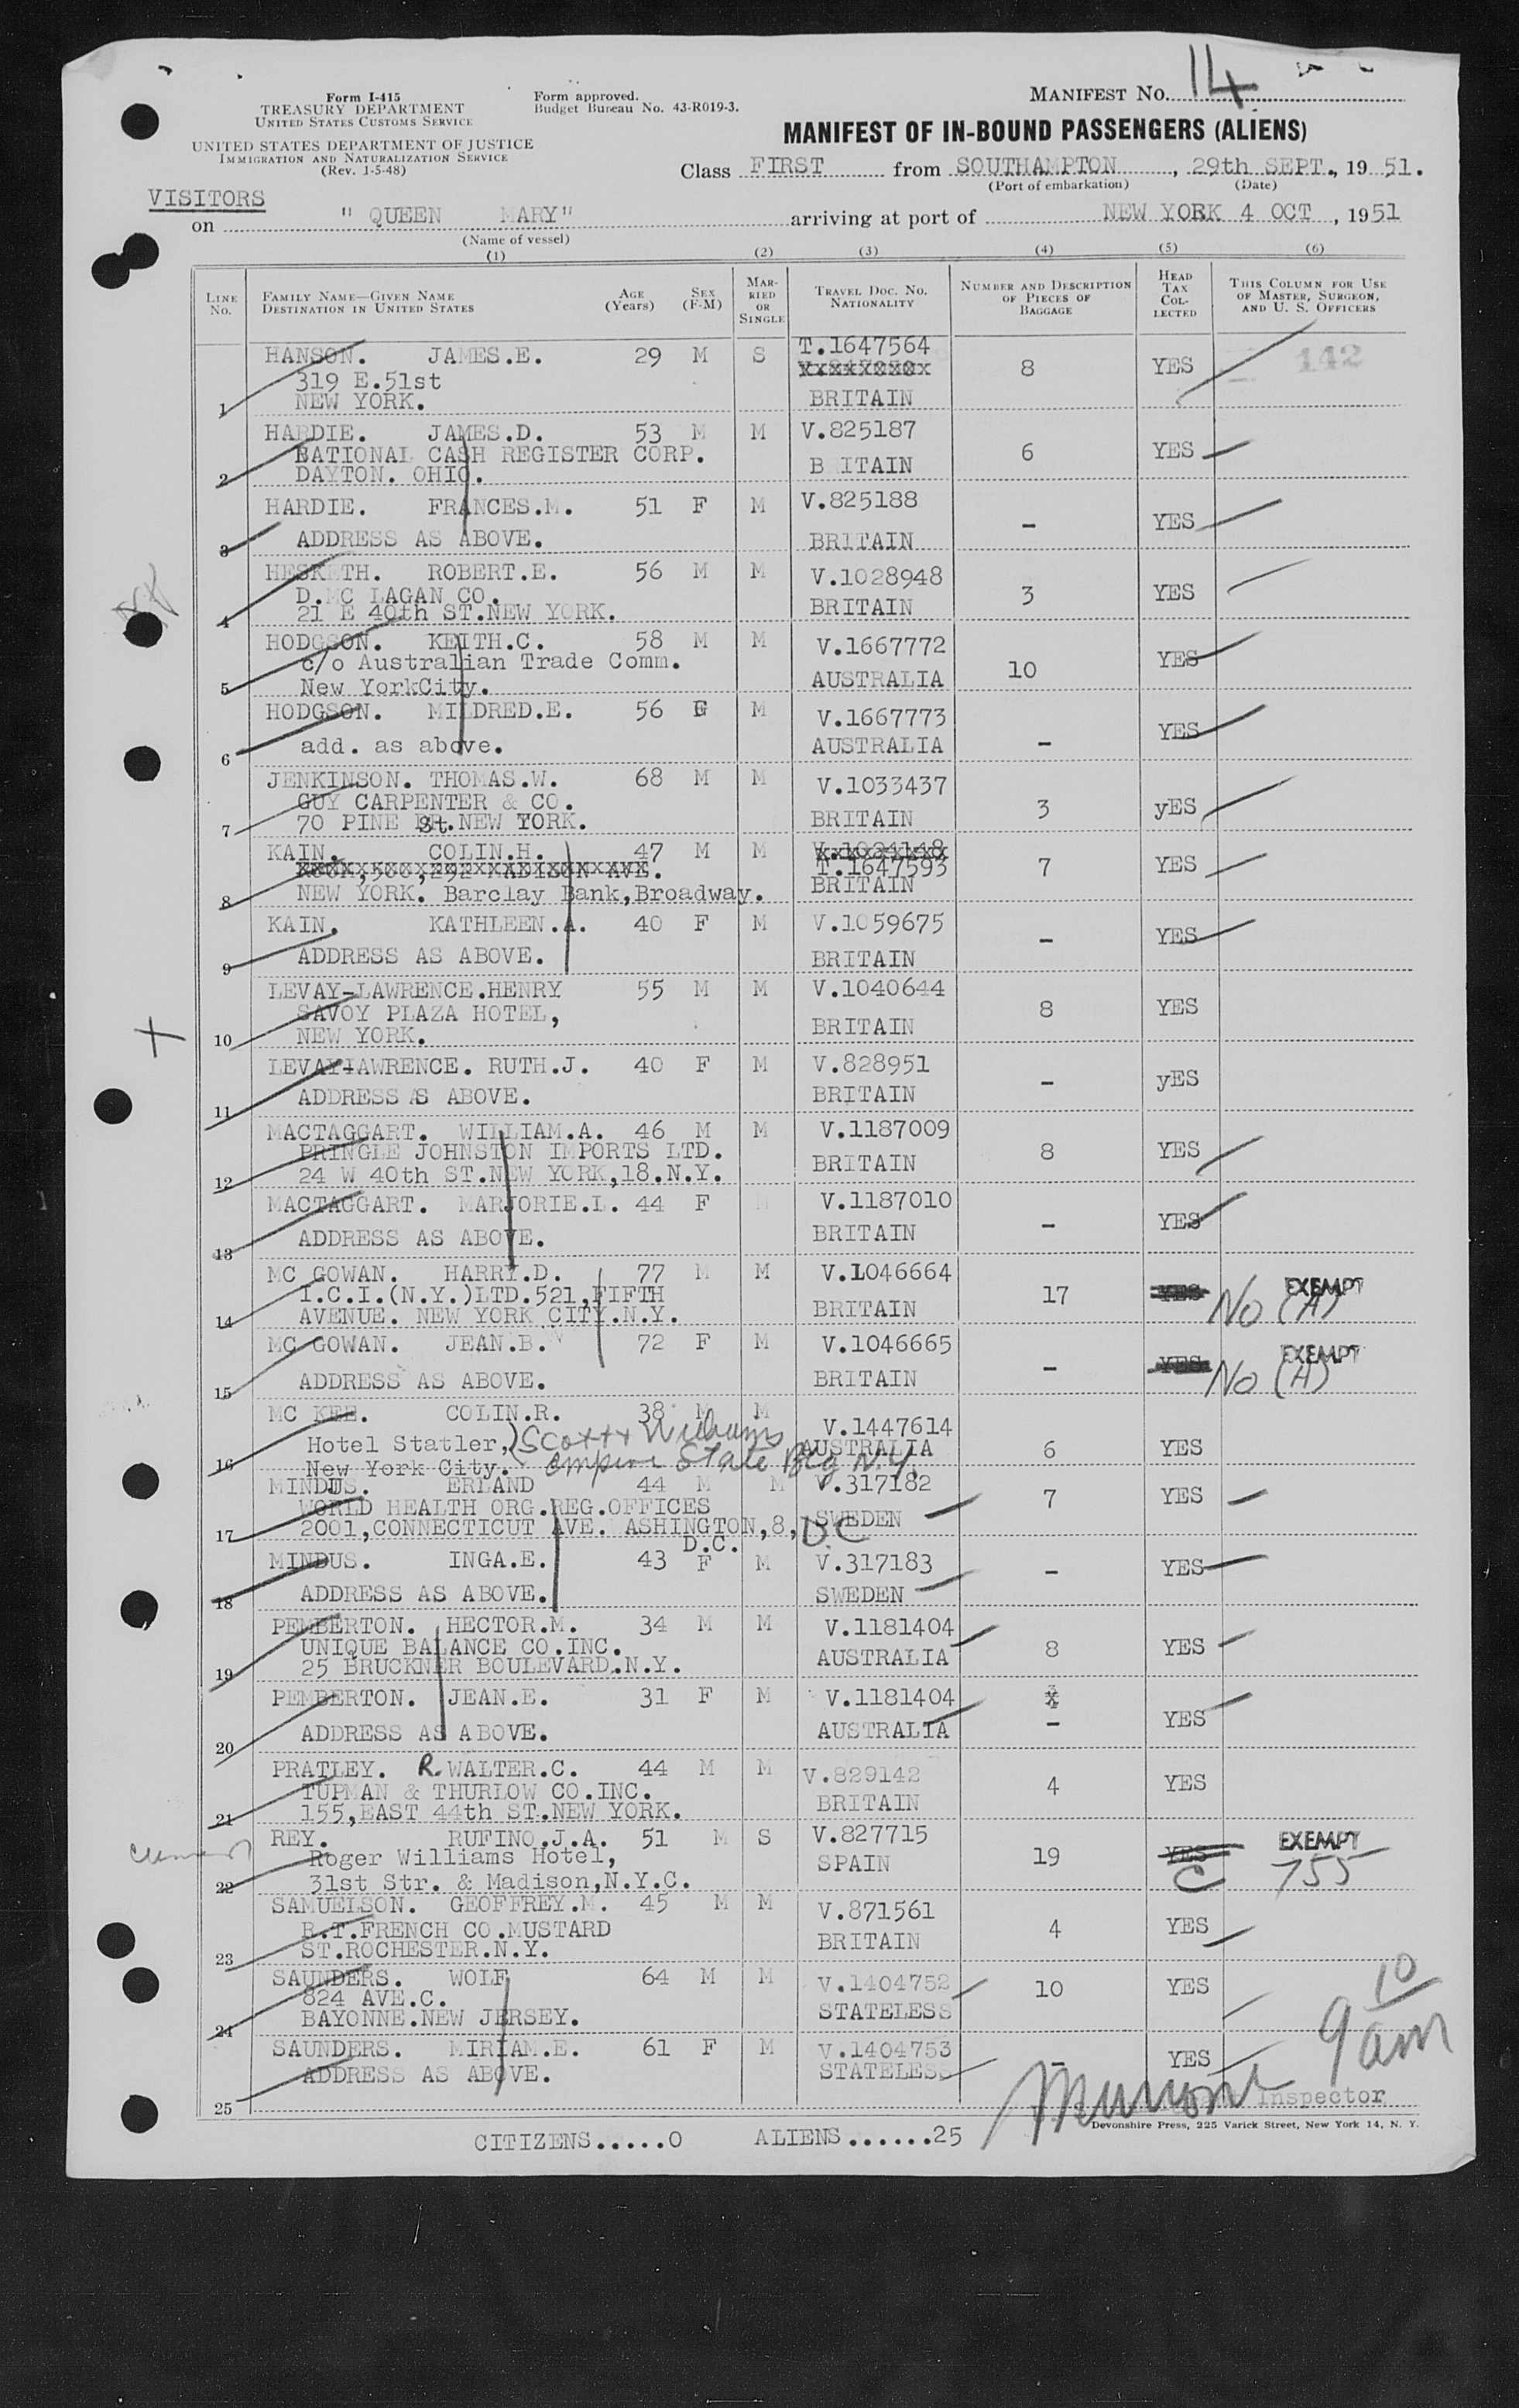 MANIFEST NO. 14
Form I-415
TREASURY DEPARTMENT
UNITED STATES CUSTOMS SERVICE
UNITED STATES DEPARTMENT OF JUSTICE
IMMIGRATION AND NATURALIZATION SERVICE
(Rev. 1-5-48)
Form approved.
Budget Bureau No. 43-R019-3.
MANIFEST OF IN-BOUND PASSENGERS (ALIENS)
Class FIRST from SOUTHAMPTON, 29th SEPT., 1951.
(Port of embarkation) (Date)
VISITORS
on " QUEEN MARY" arriving at port of NEW YORK 4 OCT, 1951
(Name of vessel)
(1) (2) (3) (4) (5) (6)
LINE NO. FAMILY NAME—GIVEN NAME DESTINATION IN UNITED STATES AGE (Years) SEX (F-M) MARRIED OR SINGLE TRAVEL DOC. NO. NATIONALITY NUMBER AND DESCRIPTION OF PIECES OF BAGGAGE HEAD TAX COLLECTED THIS COLUMN FOR USE OF MASTER, SURGEON, AND U. S. OFFICERS
HANSON. JAMES.E. 29 M S T.1647564 8 YES 142
319 E.51st
1 NEW YORK. BRITAIN
HARDIE. JAMES.D. 53 M M V.825187 6 YES
NATIONAL CASH REGISTER CORP. B ITAIN
2 DAYTON. OHIO.
HARDIE. FRANCES.M. 51 F M V.825188 - YES
3 ADDRESS AS ABOVE. BRITAIN
HESKETH. ROBERT.E. 56 M M V.1028948 3 YES
D.MC LAGAN CO.
4 21 E 40th ST.NEW YORK. BRITAIN
HODGSON. KEITH.C. 58 M M V.1667772 10 YES
c/o Australian Trade Comm.
5 New YorkCity. AUSTRALIA
HODGSON. MILDRED.E. 56 M V.1667773 - YES
6 add. as above. AUSTRALIA
JENKINSON. THOMAS.W. 68 M M V.1033437 3 yES
GUY CARPENTER & CO.
7 70 PINE St.NEW YORK. BRITAIN
KAIN. COLIN.H. 47 M M V.1024148 7 YES
T.1647593
8 NEW YORK. Barclay Bank,Broadway. BRITAIN
KAIN. KATHLEEN.A. 40 F M V.1059675 - YES
9 ADDRESS AS ABOVE. BRITAIN
LEVAY-LAWRENCE.HENRY 55 M M V.1040644 8 YES
SAVOY PLAZA HOTEL,
10 NEW YORK. BRITAIN
LEVAY-LAWRENCE. RUTH.J. 40 F M V.828951 - yES
11 ADDRESS AS ABOVE. BRITAIN
MACTAGGART. WILLIAM.A. 46 M M V.1187009 8 YES
PRINGLE JOHNSTON IMPORTS LTD.
12 24 W 40th ST.NEW YORK,18.N.Y. BRITAIN
MACTAGGART. MARJORIE.L. 44 F M V.1187010 - YES
13 ADDRESS AS ABOVE. BRITAIN
MC GOWAN. HARRY.D. 77 M M V.1046664 17 YES No (A) EXEMPT
I.C.I.(N.Y.)LTD.521,FIFTH
14 AVENUE. NEW YORK CITY.N.Y. BRITAIN
MC GOWAN. JEAN.B. 72 F M V.1046665 - YES No (A) EXEMPT
15 ADDRESS AS ABOVE. BRITAIN
MC KEE. COLIN.R. 38 M M V.1447614 6 YES
Hotel Statler, Scott & Williams AUSTRALIA
16 New York City. Empire State Blg N.Y.
MINDUS. ERLAND 44 M M V.317182 7 YES
WORLD HEALTH ORG.REG.OFFICES SWEDEN
17 2001,CONNECTICUT AVE. ASHINGTON,8, D.C
D.C.
MINDUS. INGA.E. 43 F M V.317183 - YES
18 ADDRESS AS ABOVE. SWEDEN
PEMBERTON. HECTOR.M. 34 M M V.1181404 8 YES
UNIQUE BALANCE CO.INC.
19 25 BRUCKNER BOULEVARD.N.Y. AUSTRALIA
PEMBERTON. JEAN.E. 31 F M V.1181404 - YES
20 ADDRESS AS ABOVE. AUSTRALIA
PRATLEY. R. WALTER.C. 44 M M V.829142 4 YES
TUPMAN & THURLOW CO.INC.
21 155,EAST 44th ST.NEW YORK. BRITAIN
REY. RUFINO.J.A. 51 M S V.827715 19 YES C EXEMPT 755
Roger Williams Hotel, SPAIN
22 31st Str. & Madison,N.Y.C.
SAMUELSON. GEOFFREY.M. 45 M M V.871561 4 YES
R.T.FRENCH CO.MUSTARD
23 ST.ROCHESTER.N.Y. BRITAIN
SAUNDERS. WOLF 64 M M V.1404752 10 YES
824 AVE.C.
24 BAYONNE.NEW JERSEY. STATELESS
SAUNDERS. MIRIAM.E. 61 F M V.1404753 - YES
ADDRESS AS ABOVE. STATELESS
25
10
9 am
Inspector
Devonshire Press, 225 Varick Street, New York 14, N. Y.
CITIZENS.....0 ALIENS......25